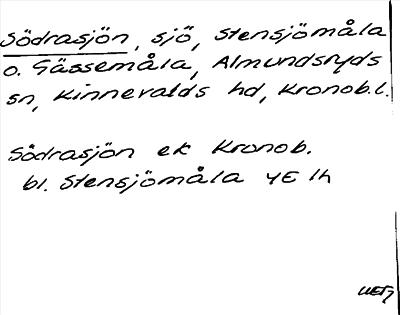 Södrasjön, sjö, Stensjömåla
o. Gässemåla, Almundsryds
sn, Kinnevalds hd, Kronob.l.
Södrasjön ek Kronob.
bl. Stensjömåla 4E 1h